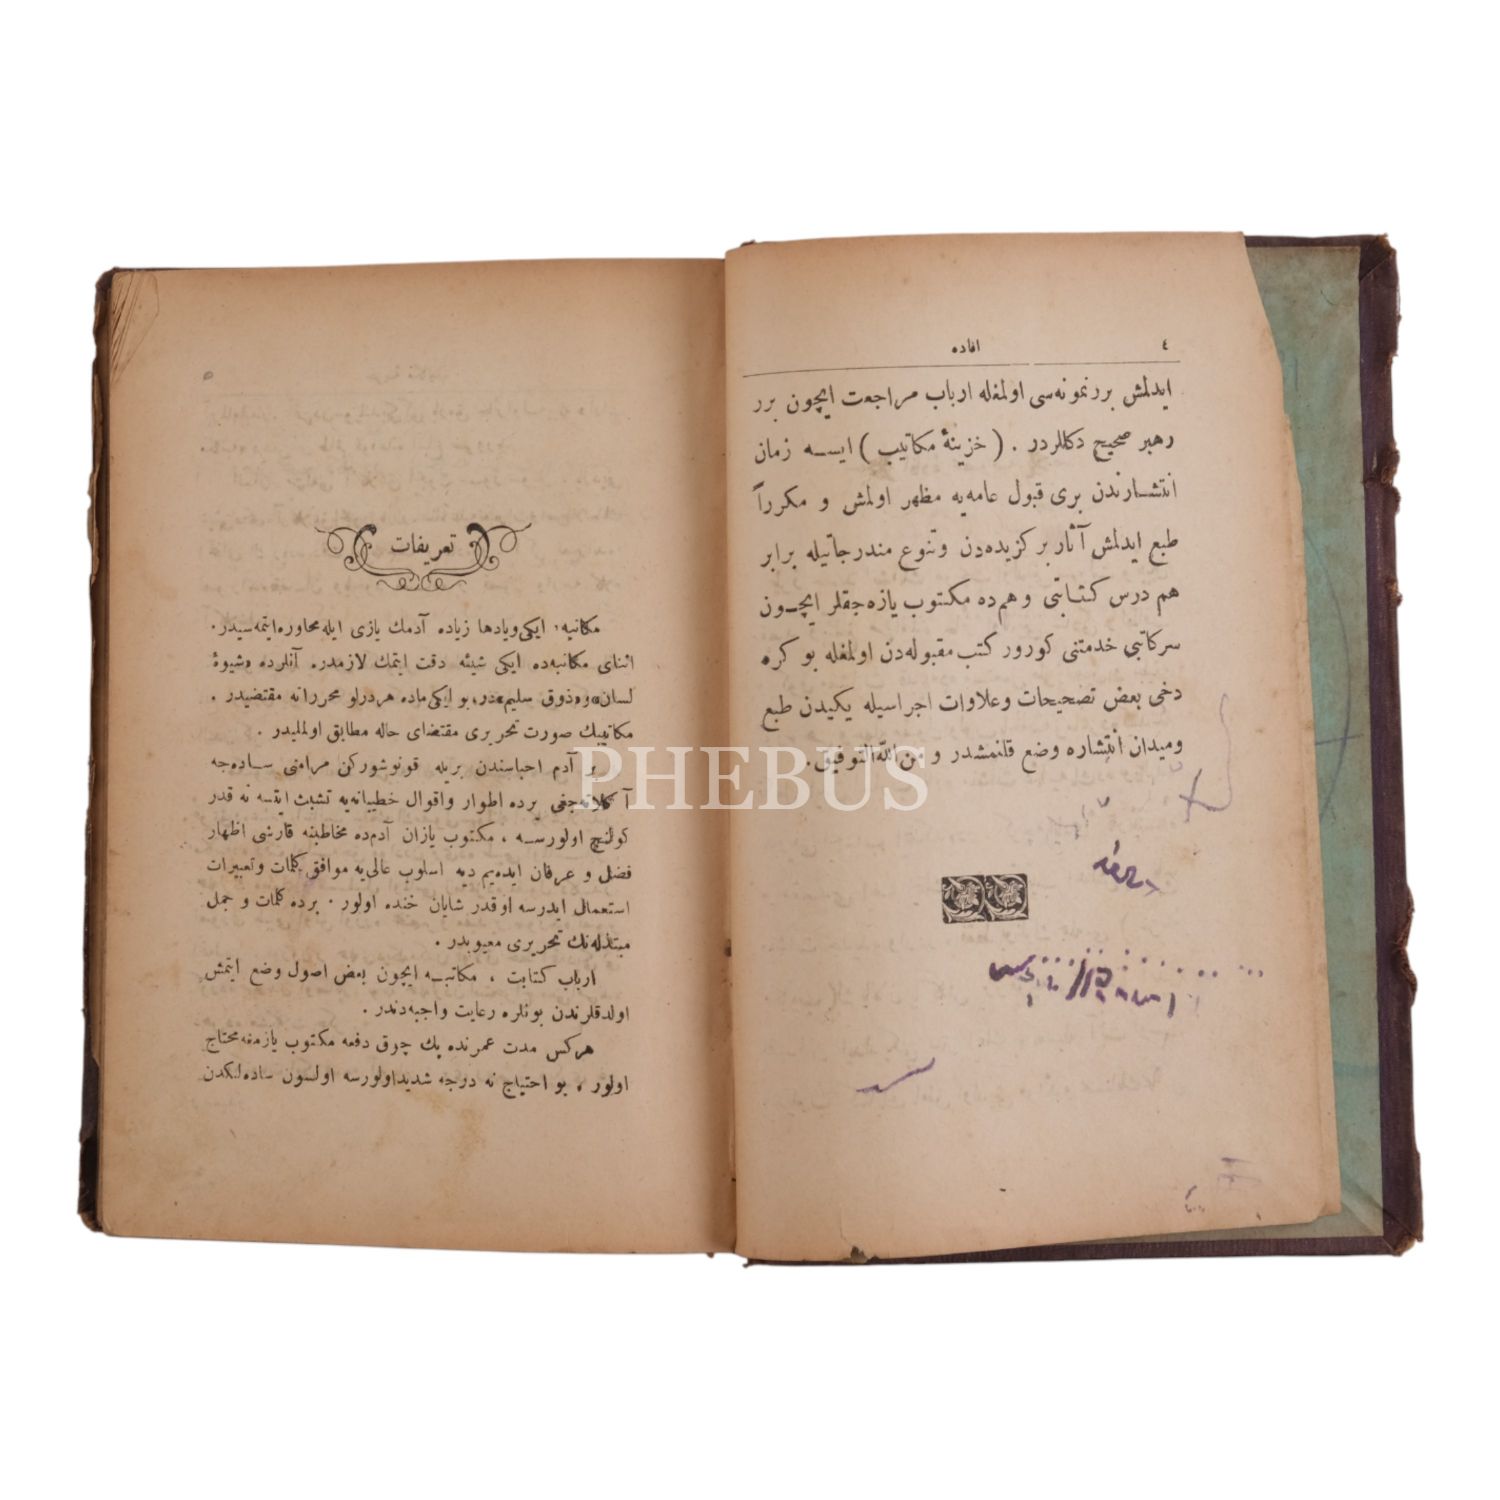 ٤
افاده
ایدلمش بررنمونه‌سی اولمغله ارباب مراجعت ایچون برر
رهبر صحیح دکللردر . ( خزینۀ مکاتیب ) ایسه زمان
انتشارندن بری قبول عامه‌یه مظهر اولمش و مکرراً
طبع ایدلمش آثار برکزیده‌دن و تنوع مندرجاتیله برابر
هم درس کتابتی و هم‌ده مکتوب یازه‌جقلر ایچون
سرکاتبی خدمتنی کورور کتب مقبوله‌دن اولمغله بو کره
دخی بعض تصحیحات و علاوات اجراسیله یکیدن طبع
ومیدان انتشاره وضع قلنمشدر و من الله‌التوفیق .
PHEBUS
تعریفات
مکاتبه، ایکی‌ویادها زیاده آدمك یازی ایله محاوره‌ایتمه‌سیدر.
اثنای مکاتبه‌ده ایکی شیئه دقت ایتمك لازمدر. آنلرده «شیوۀ
لسان» و «ذوق سلیم»در، بو ایکی‌ماده هردرلو محررانه مقتضیدر .
مکاتیبك صورت تحریری مقتضای حاله مطابق اولملیدر .
بر آدم احباسندن بریله قونوشورکن مرامنی ساده‌جه
آکلاته‌جغی یرده اطوار واقوال خطیبانه‌یه تشبث ایتسه نه قدر
کولنج اولورسه ، مکتوب یازان آدم‌ده مخاطبنه قارشی اظهار
فضل و عرفان ایده‌یم دیه اسلوب عالی‌یه موافق کلمات وتعبیرات
استعمال ایدرسه اوقدر شایان خنده اولور . برده کلمات و جمل
مبتذله‌نك تحریری معیوبدر .
ارباب کتابت ، مکاتبه ایچون بعض اصول وضع ایتمش
اولدقلرندن بونلره رعایت واجبه‌دندر .
هرکس مدت عمرنده پك چوق دفعه مکتوب یازمغه‌محتاج
اولور ، بو احتیاج نه درجه شدیداولورسه اولسون ساده‌لکدن